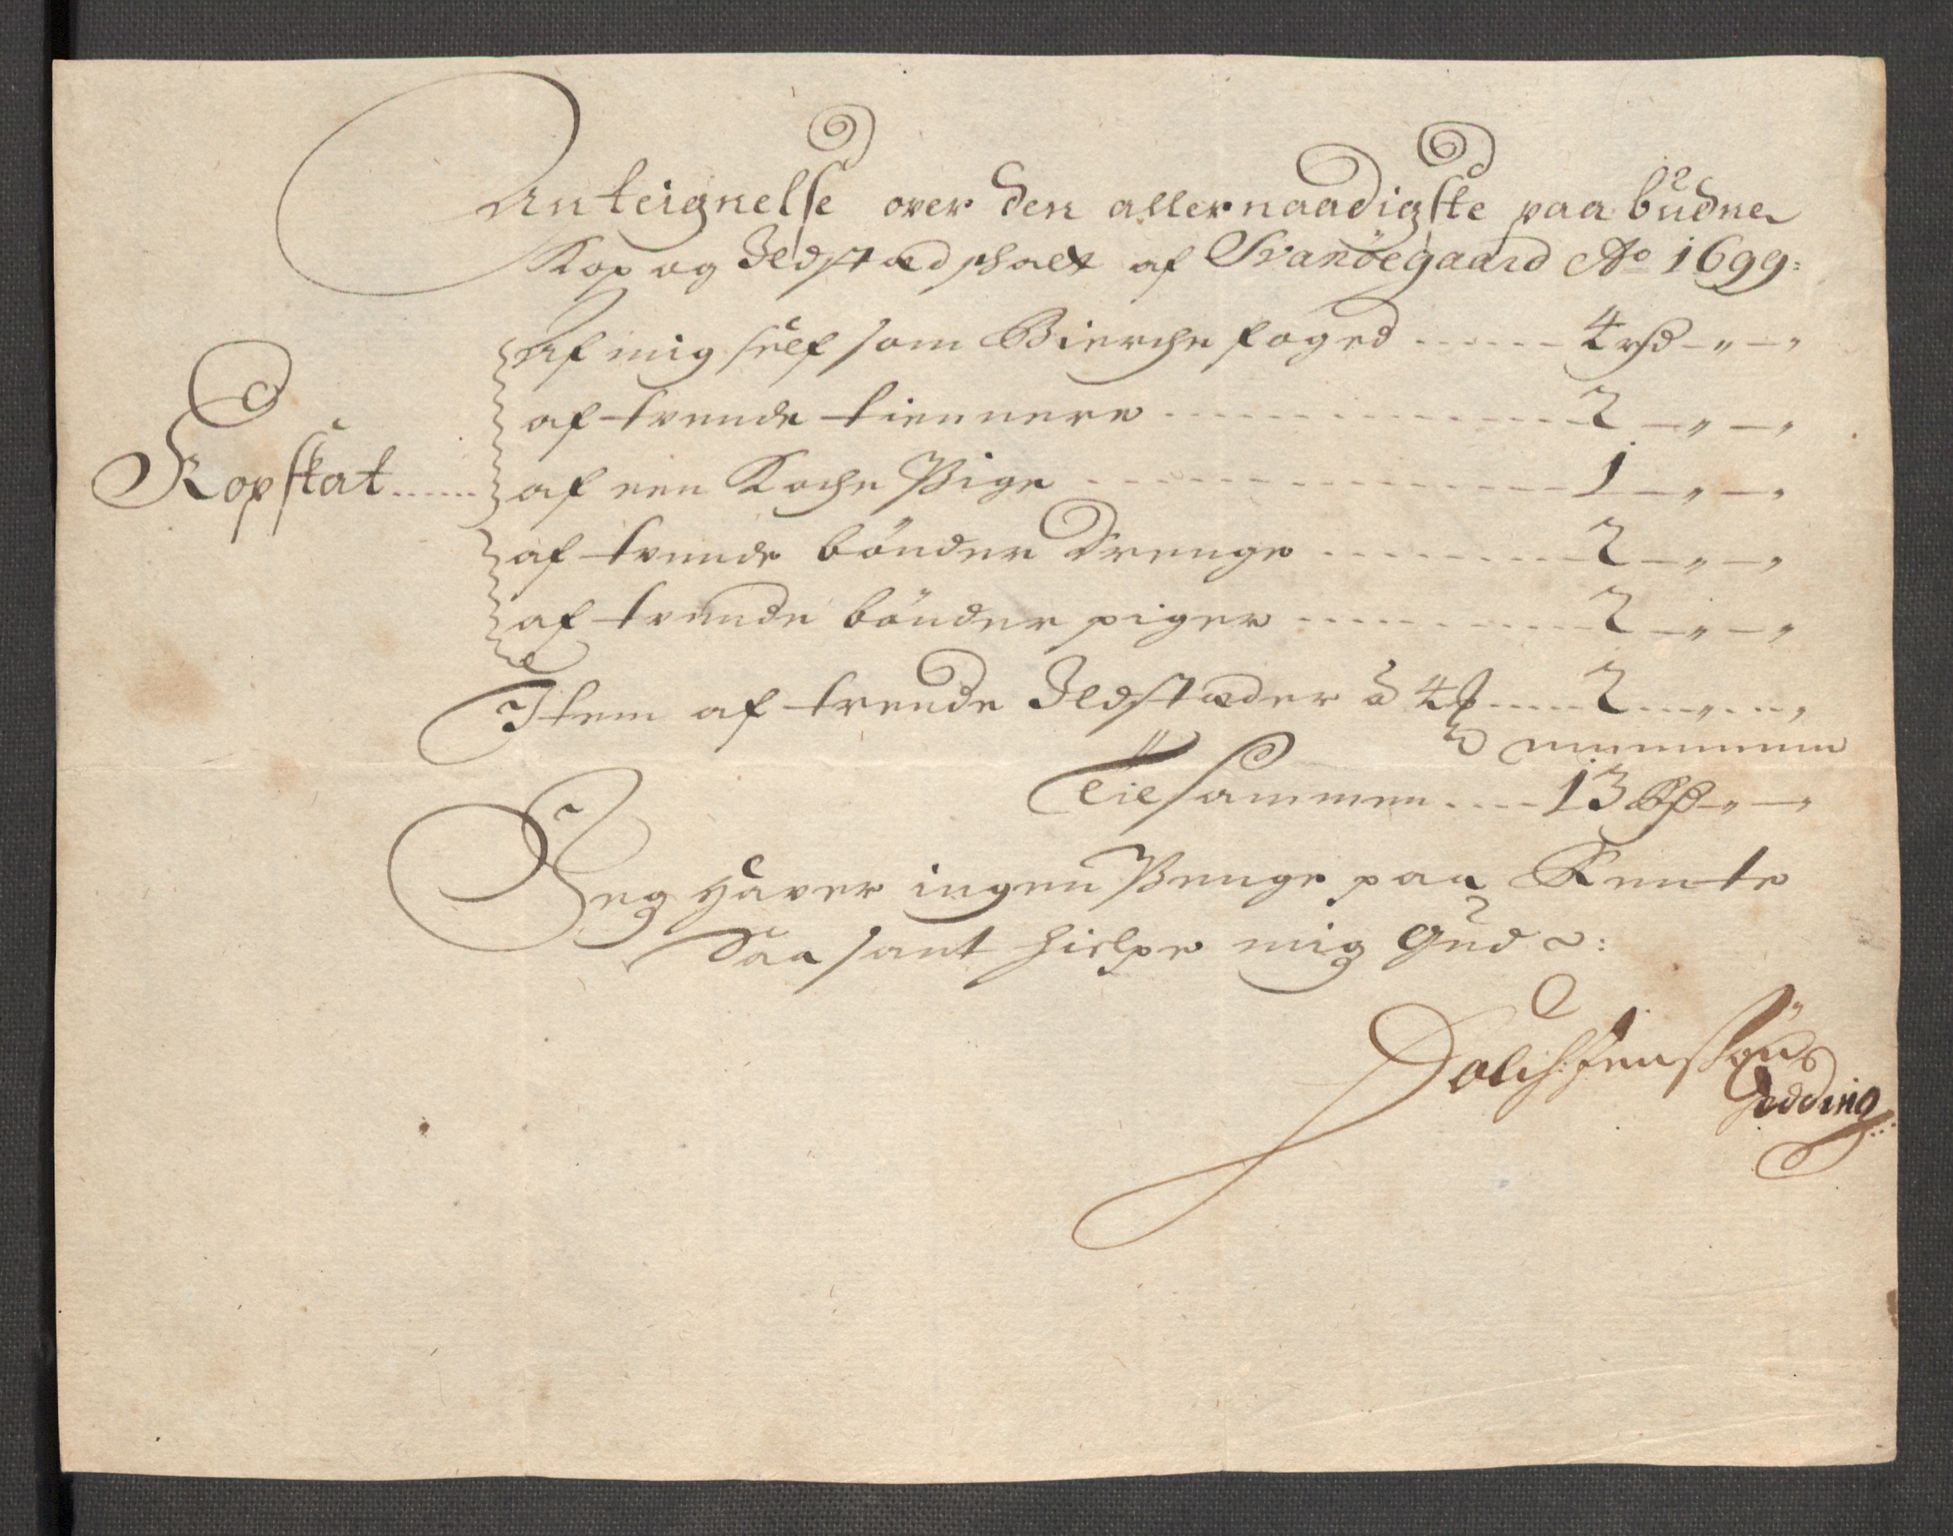 Anteignelse over den allernaadigste paa budne
Kop og Ildstædschatt af Svanöegaard Ao 1699:
Af mig self som Bierche foged ...... 4 rd - " - "
af trende tiennere ............ 2 - " - "
Kopskat ...... af een Koche Pige ............ 1 - " - "
af trende bönder Drenge ......... 2 - " - "
af trende bönder piger ............ 2 - " - "
Item af trende Ildstæder à 4 ...... 2 ... " ... "
Tilsammen .... 13 Rd - " - "
Jeg haver ingen Penge paa Rente
Saa sant hielpe mig Gud :
Gedding